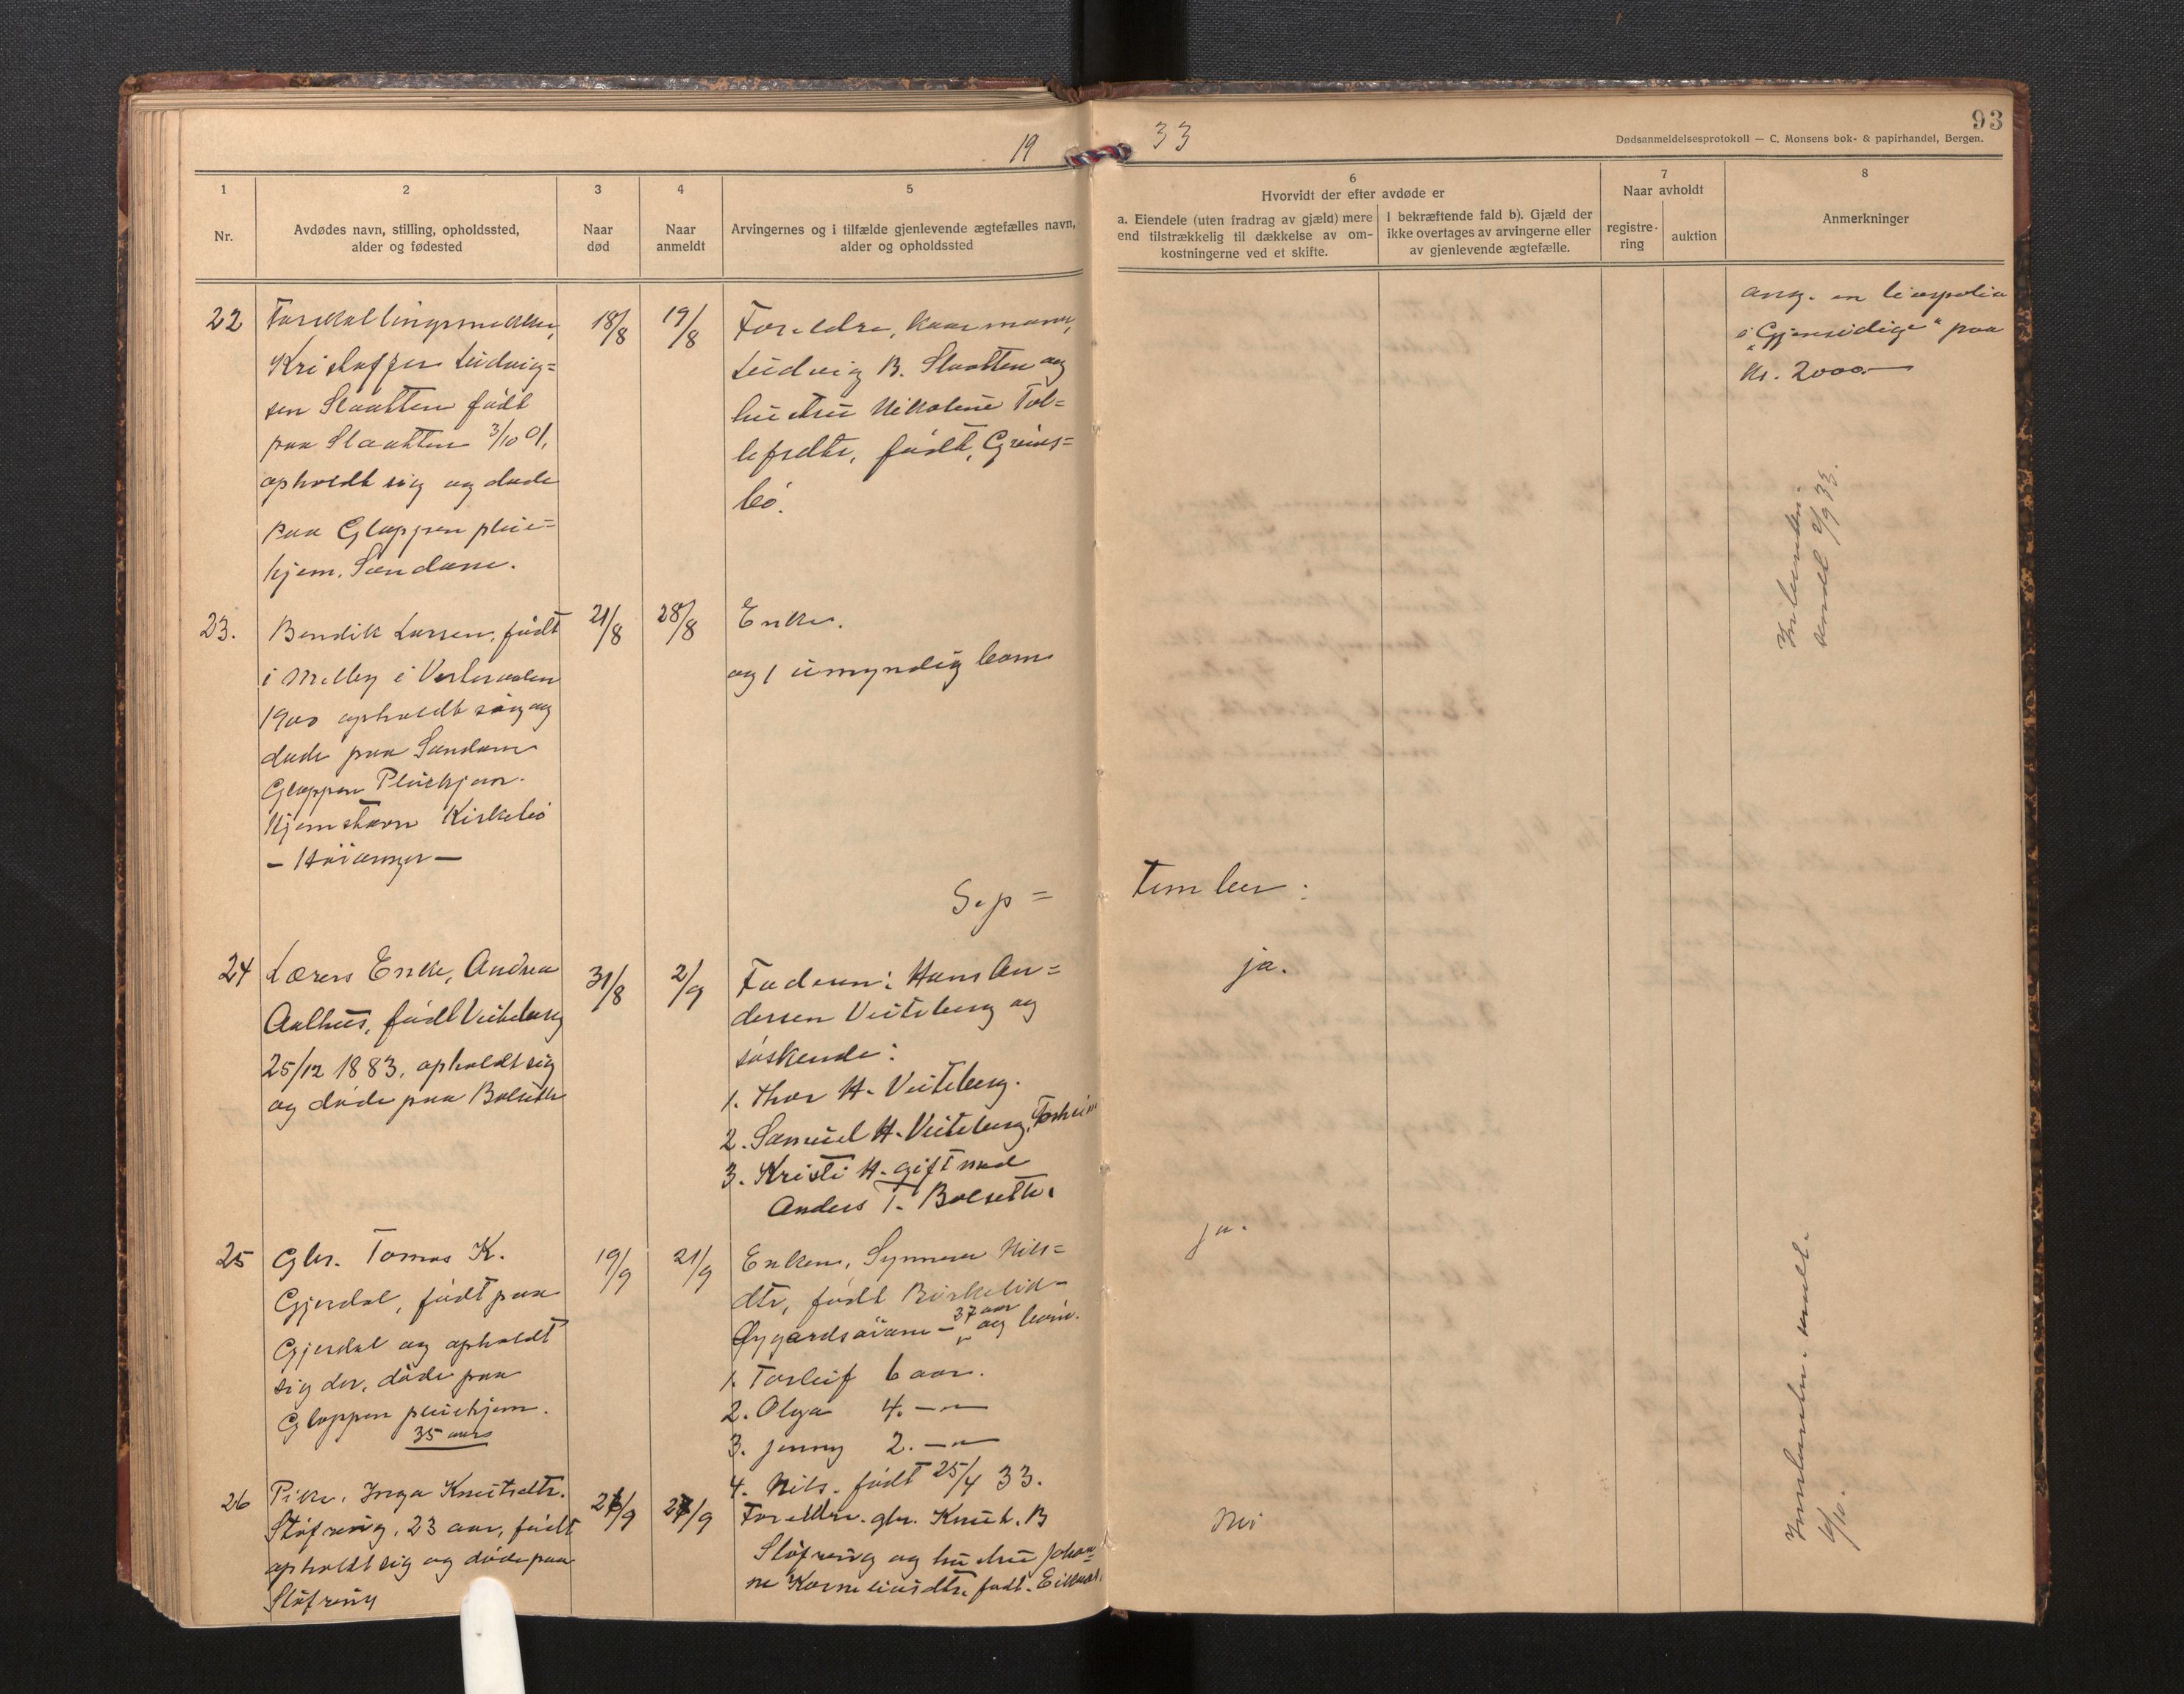 93
19 33
Dødsanmeldelsesprotokoll — C. Monsens bok- & papirhandel, Bergen.
1
Nr.
2
Avdødes navn, stilling, opholdssted,
alder og fødested
3
Naar
død
4
Naar
anmeldt
5
Arvingernes og i tilfælde gjenlevende ægtefælles navn,
alder og opholdssted
6
Hvorvidt der efter avdøde er
a. Eiendele (uten fradrag av gjæld) mere
end tilstrækkelig til dækkelse av om-
kostningerne ved et skifte.
I bekræftende fald b). Gjæld der
ikke overtages av arvingerne eller
av gjenlevende ægtefælle.
7
Naar avholdt
registre-
ring
auktion
8
Anmerkninger
22
Kristoffer Ludvig=
sen Slaatten född
paa Slaatten 3/10 01,
opholdt sig og døde
paa Gloppen pleie=
hjem, Sandane.
18/8
19/8
Foreldre,
Ludvig B. Slaatten og
hustru Nikoline Tol=
lefsdtr, född, Grims=
bö.
ang. en livspolice
i "Gjensidige" paa
kr. 2000.—
sendt 2/9 33.
23.
Bendik Larsen, född
i Melby i
1900 opholdt sig og
døde paa Sandane
Gloppen Pleiehjem.
Hjemstavn Kirkebö
— Höianger —
21/8
28/8
Enke.
og 1 umyndig barn
Sep= tember:
24
Lærers Enke, Andrea
Aalhus, född Veiteberg
25/12 1883, opholdt sig
og döde paa Bolsette
31/8
2/9
Faderen: Hans An=
dersen Veiteberg og
söskende:
1. Thor H. Veiteberg.
2. Samuel H. Veiteberg,
3. Kristi H. gift med
Anders T. Bolsette.
ja.
25
Gbr. Tomas K.
Gjerdal, född paa
Gjerdal og opholdt
sig der, döde paa
Gloppen pleiehjem.
35 aars
19/9
21/9
Enken, Synneva Nils=
dtr, född Birkelid-
Øygardsöiane — 37 aar og barn.
1. Torleif 6 aar.
2. Olga 4. — " —
3. Jenny 2. — " —
4. Nils. född 25/4 33.
ja.
26
Pike, Inga Knutsdtr.
Støfring, 23 aar, född
opholdt sig og döde paa
Støfring
/9
/9
Foreldre. gbr. Knut. B
Støfring og hustru Johan=
ne Korneliusdtr. född.
Nei
sendt.
6/10.